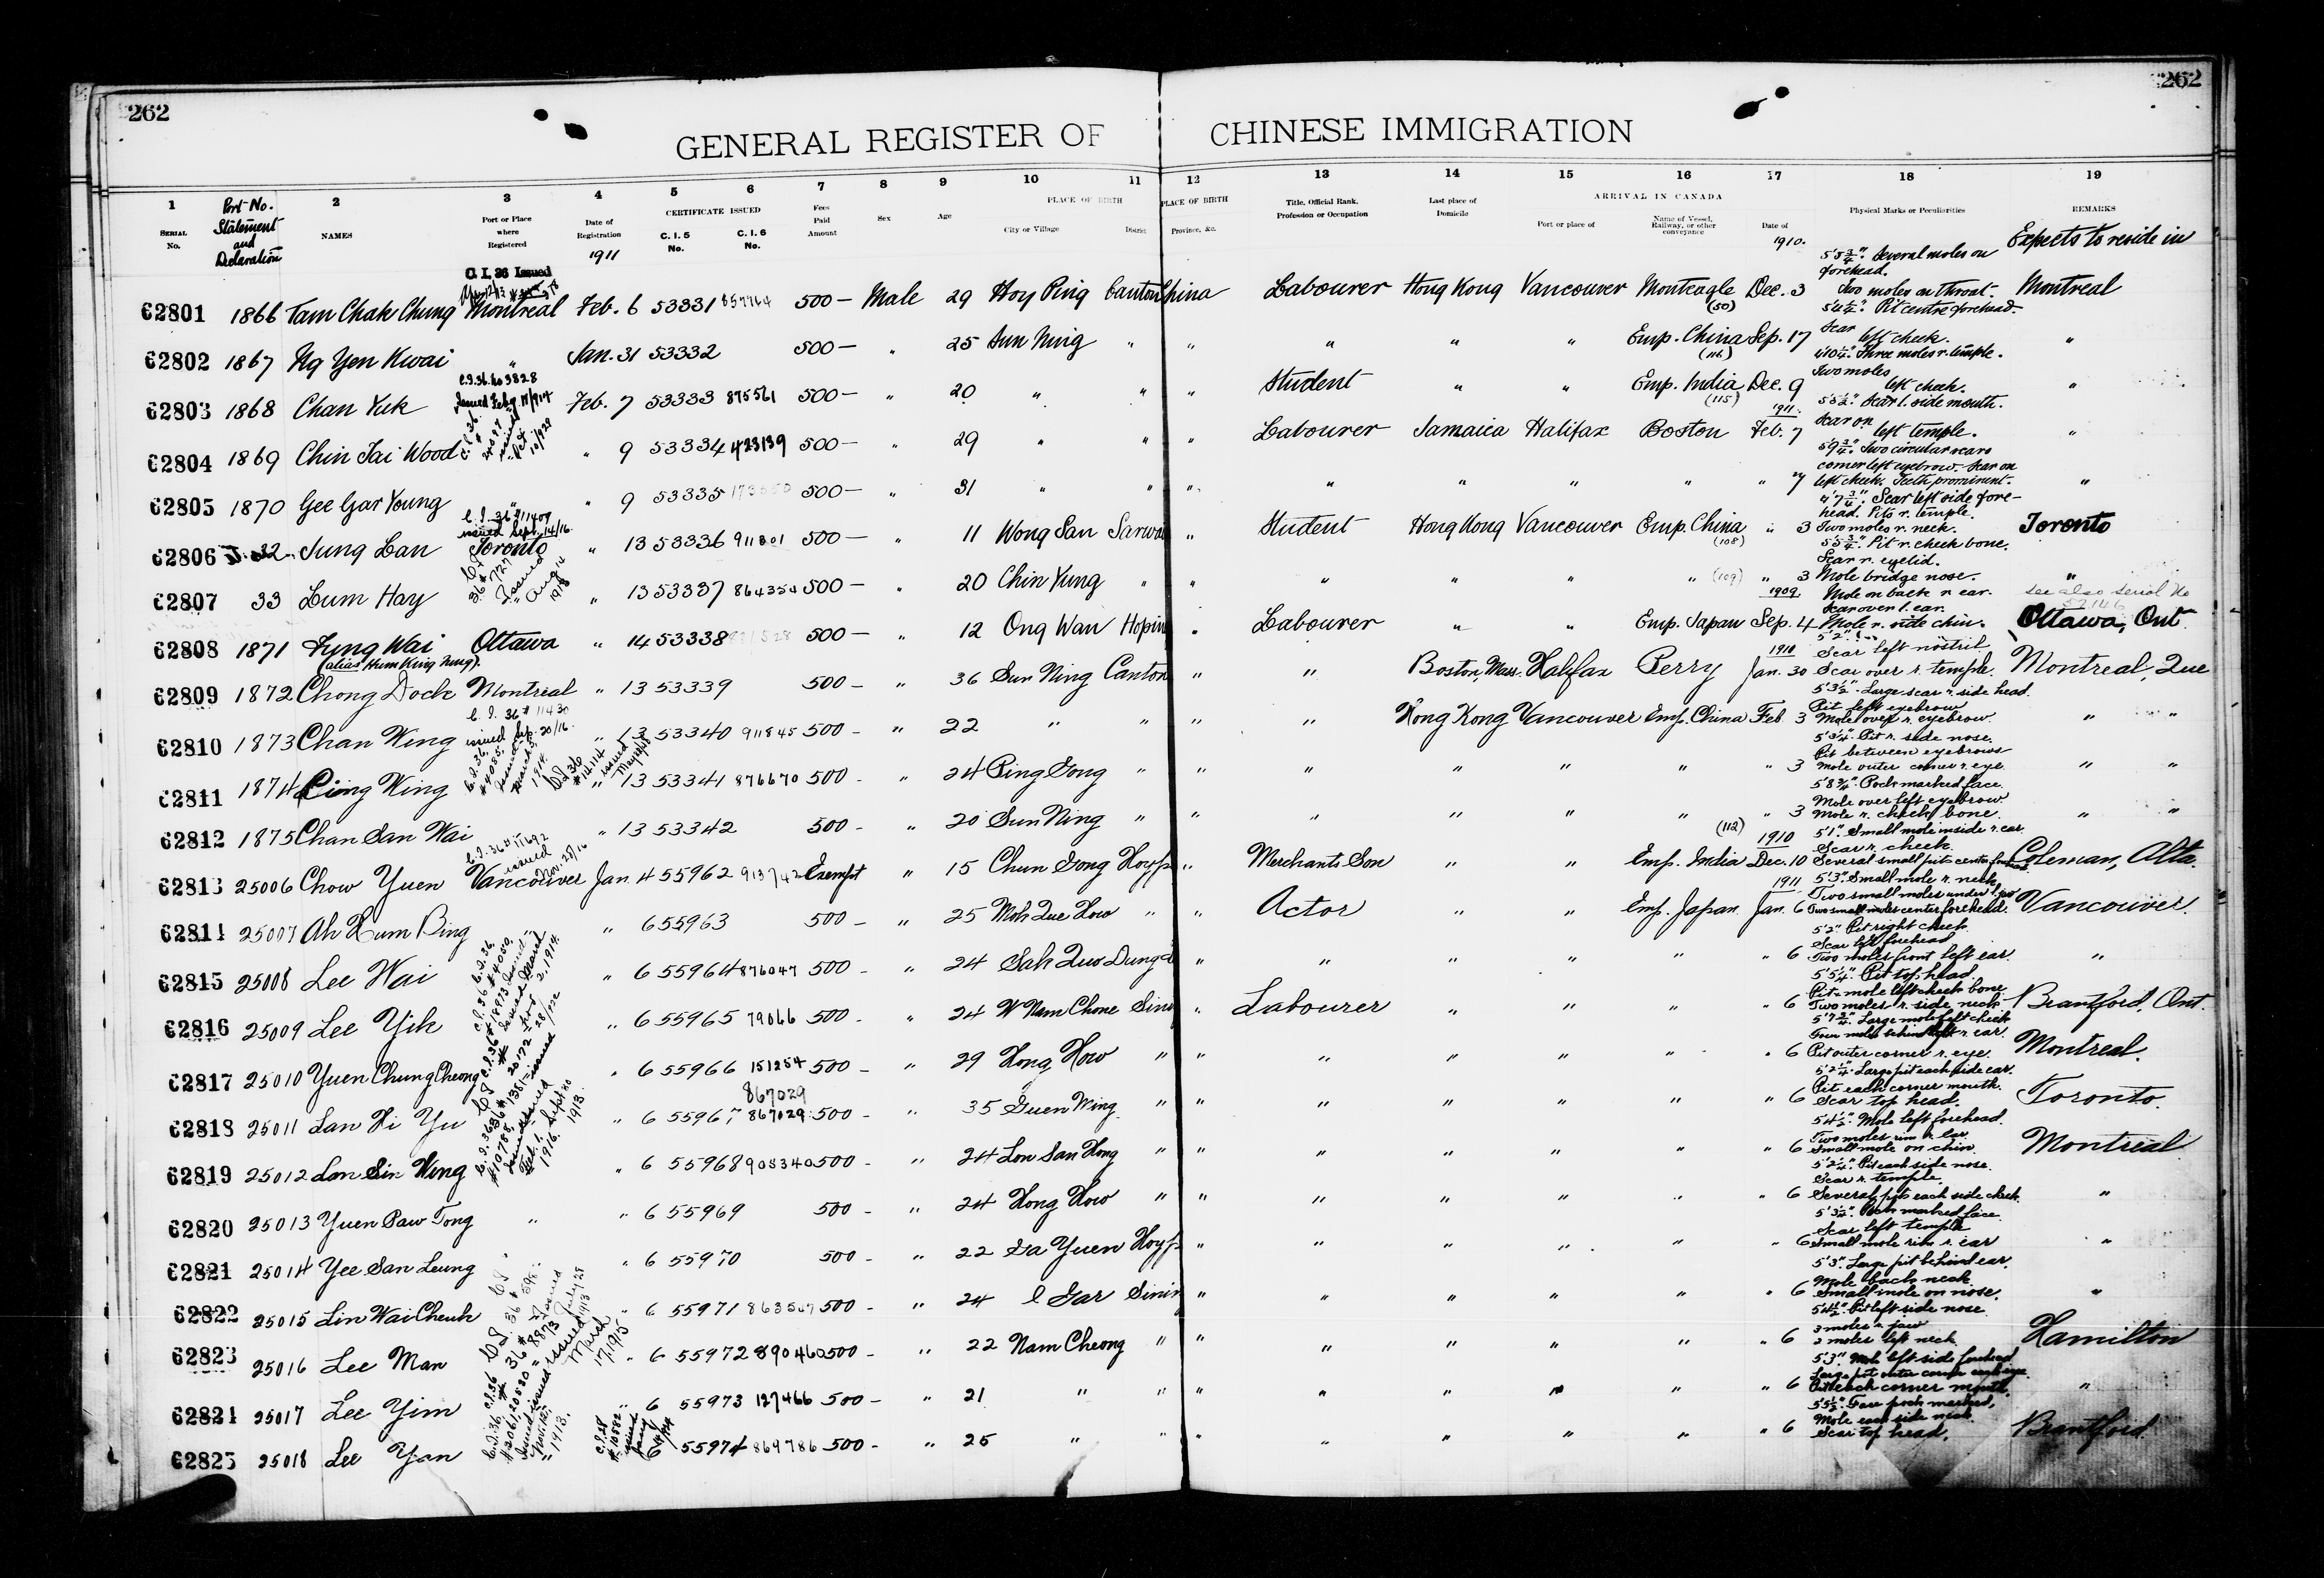 262
262
GENERAL REGISTER OF CHINESE IMMIGRATION
1 Port No. Statement and Declaration 2 3 4 5 6 7 8 9 10 11 12 13 14 15 16 17 18 19
SERIAL No. NAMES Port or Place where Registered Date of Registration CERTIFICATE ISSUED C. I. 5 No. C. I. 6 No. Fees Paid Amount Sex Age PLACE OF BIRTH City or Village District PLACE OF BIRTH Province, &c. Title, Official Rank, Profession or Occupation Last place of Domicile ARRIVAL IN CANADA Port or place of Name of Vessel, Railway, or other conveyance Date of Physical Marks or Peculiarities REMARKS
1911 1910. Expects to reside in
C. I. 36 Issued
5'5 3/4". Several moles on forehead.
62801 1866 Tam Chak Chung Montreal Feb. 6 53331 857764 500— Male 29 Hoy Ping Canton China Labourer Hong Kong Vancouver Monteagle (50) Dec. 3 Two moles on throat. Montreal
5'4 1/2". Pit centre forehead.
62802 1867 Ng Yen Kwai " Jan. 31 53332 500— " 25 Sun Ning " " " " " Emp. China (116) Sep. 17 Scar left cheek. "
C.I.36. No 3828 Issued Feb'y 17/914
4'10 1/4". Three moles r. temple.
62803 1868 Chan Yuk Feb. 7 53333 875561 500— " 20 " " " Student " " Emp. India (115) Dec. 9 Two moles left cheek. "
5'5 1/2". Scar l. side mouth.
1911.
62804 1869 Chin Tai Wood " 9 53334 423139 500— " 29 " " " Labourer Jamaica Halifax Boston Feb. 7 Scar on left temple. "
5'9 3/4". Two circular scars corner left eyebrow. Scar on
62805 1870 Gee Gar Young " " 9 53335 500— " 31 " " " " " " " " 7 left cheek. Teeth prominent. "
C. I. 36 #11409 issued Sept. 14/16
4'7 3/4". Scar left side forehead. Pits r. temple.
62806 32 Jung Lan Toronto " 13 53336 911801 500— " 11 Wong San " Student Hong Kong Vancouver Emp. China (108) " 3 Two moles r. neck. Toronto
5'5 3/4". Pit r. cheek bone. Scar r. eyelid.
62807 33 Lum Hay " " 13 53337 864354 500— " 20 Chin Yung " " " " " " (109) " 3 Mole bridge nose. "
1909. Mole on back r. ear. Scar over l. ear. see also serial No
62808 1871 Fung Wai Ottawa " 14 53338 500— " 12 Ong Wan " Labourer " " Emp. Japan Sep. 4 Mole r. side chin. Ottawa, Ont
(alias Hum King Nung).
1910 Scar left nostril
62809 1872 Chong Dock Montreal " 13 53339 500— " 36 Sun Ning Canton " " Boston, Mass. Halifax Perry Jan. 30 Scar over r. temple. Montreal, Que
C. I. 36 # 11430 issued Sep. 20/16.
5'3 1/2". Large scar r. side head. Pit left eyebrow
62810 1873 Chan Wing " 13 53340 911845 500— " 22 " " " " Hong Kong Vancouver Emp. China Feb 3 Mole over r. eyebrow. " "
5'3 1/4". Pit r. side nose. Pit between eyebrows
62811 1874 Ping Wing " 13 53341 876670 500— " 24 Ping Gong " " " " " " " 3 Mole outer corner r. eye. " "
5'8 3/4". Pock marked face. Mole over left eyebrow.
62812 1875 Chan San Wai " 13 53342 500— " 20 Sun Ning " " " " " " " 3 Mole r. cheek bone. " "
C.I.36 #11692 issued Nov. 27/16
(112) 1910 5'1". Small mole inside r. ear. Scar r. cheek.
62813 25006 Chow Yuen Vancouver Jan. 4 55962 913742 Exempt " 15 Chun Gong " Merchants Son " " Emp. India Dec. 10 Several small pits center forehead Coleman, Alta.
1911 5'3". Small mole r. neck.
62814 25007 Ah Hum Bing " 6 55963 500— " 25 Mok Que How " " Actor " " Emp. Japan Jan. 6 Two small moles center forehead. Vancouver.
5'2". Pit right cheek. Scar left forehead
62815 25008 Lee Wai " 6 55964 876047 500— " 24 " " " " " " 6 Two moles front left ear. "
5'5 1/4". Pit top head. Pit & mole left cheek bone.
62816 25009 Lee Yik " 6 55965 79066 500— " 24 W Nam Chone " Labourer " " " " 6 Two moles r. side neck. Brantford, Ont.
5'7 3/4". Large mole left cheek
62817 25010 Yuen Chung Cheong " 6 55966 151254 500— " 29 Hong How " " " " " " " 6 Pit outer corner r. eye. Montreal.
867029 5'2 1/4". Large pit each side ear. Pit each corner mouth.
62818 25011 Lan Hi Yu " 6 55967 867029 500— " 35 Guen Ming " " " " " " " 6 Scar top head. Toronto.
5'4 1/2". Mole left forehead. Two moles rim r. ear.
62819 25012 Lon Sin Wing " 6 55968 908340 500— " 24 Lon San Hong " " " " " " " 6 Small mole on chin. Montreal
5'2 1/4". Pit each side nose. Scar r. temple.
62820 25013 Yuen Paw Tong " " 6 55969 500— " 24 Hong How " " " " " " " 6 Several pits each side cheek. "
5'3 1/4". Pock marked face. Scar left temple
62821 25014 Yee San Leung " " 6 55970 500— " 22 Ga Yuen " " " " " " 6 Small mole rim r. ear "
5'3". Large pit behind ear. Mole back neck.
62822 25015 Lin Wai Cheuk " 6 55971 500— " 24 " " " " " " 6 Small mole on nose. "
5'4 1/2". Pit left side nose 3 moles r. jaw
62823 25016 Lee Man " 6 55972 890460 500— " 22 Nam Cheong " " " " " " " 6 2 moles left neck Hamilton
5'3". Mole left side forehead.
62824 25017 Lee Yim " 6 55973 127466 500— " 21 " " " " " " " " 6 Pit each corner mouth. "
5'5 1/2". Face pock marked, Mole each side neck.
62825 25018 Lee Yan 6 55974 869786 500— " 25 " " " " " " " " 6 Scar top head. Brantford.